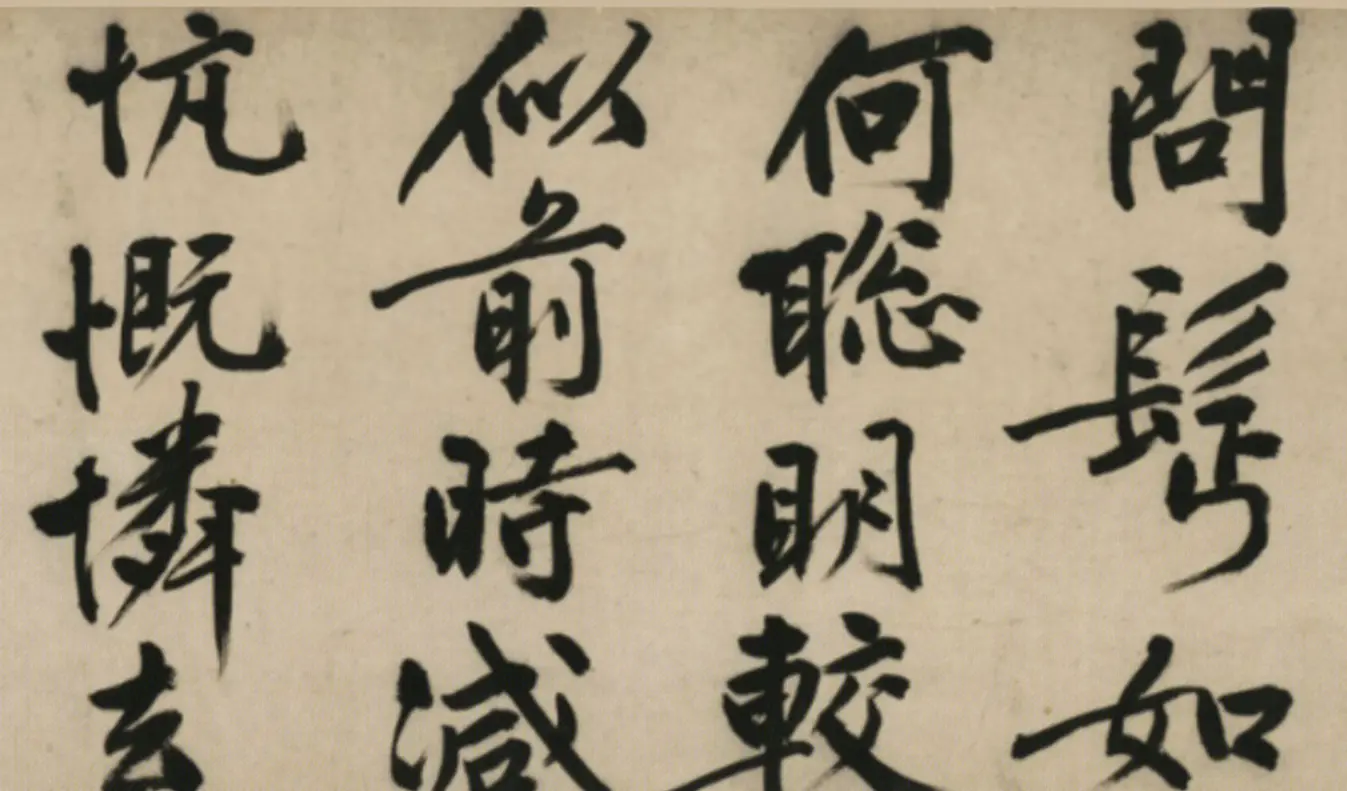 問髩如
何聡明較
似前時減
忼慨憐